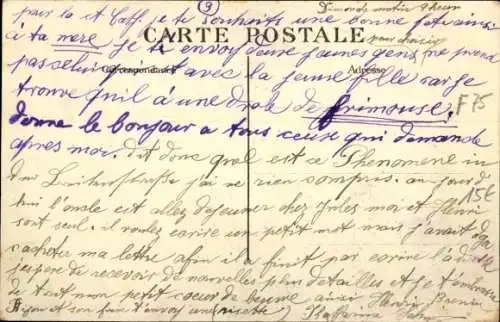 ⑨ Dimanche matin 9 heur
pour la st Caff. je te souhaits une bonne fête ainsi
CARTE POSTALE
à ta mere je te envoy deux jeunes gens ne prend
pour choisir
Correspondance
Adresse
pas celui avec la jeune fille car je
trouve qu'il a une drole de frimousse.
F 75
donne le bonjour a tous ceux qui demande
apres moi. dit donc quel est ce Phenomene
j'ai rien compris. au jourd
15€
hui l'oncle est allez dejeuner chez Jules moi et Henri
sont seul. il voulez ecrire un petit mot mais j'avait deja
cacheter ma lettre afin il a finit par ecrire
j'espere de recevoir de nouvelles plus detailles et je t'embrasse
de tout mon petit coeur de beurre ainsi Henri
et son t'envoy une (risette)